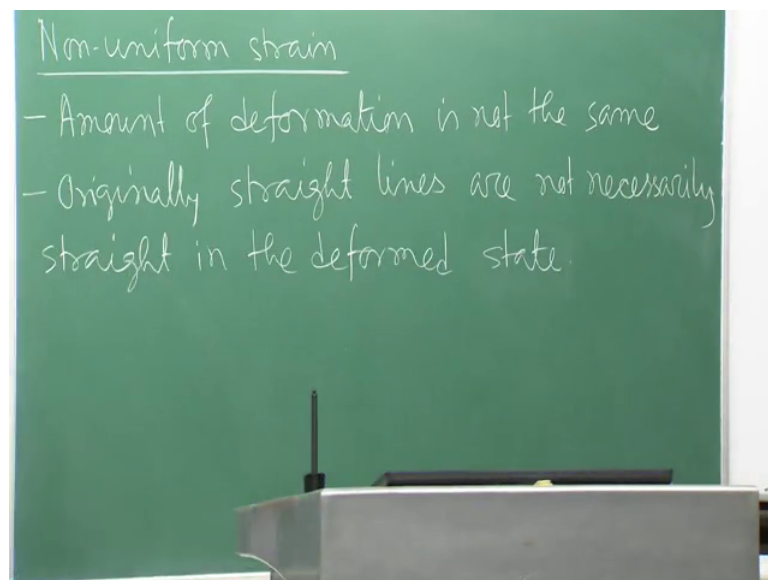 Non-uniform strain
- Amount of deformation is not the same
- Originally straight lines are not necessarily
straight in the deformed state.